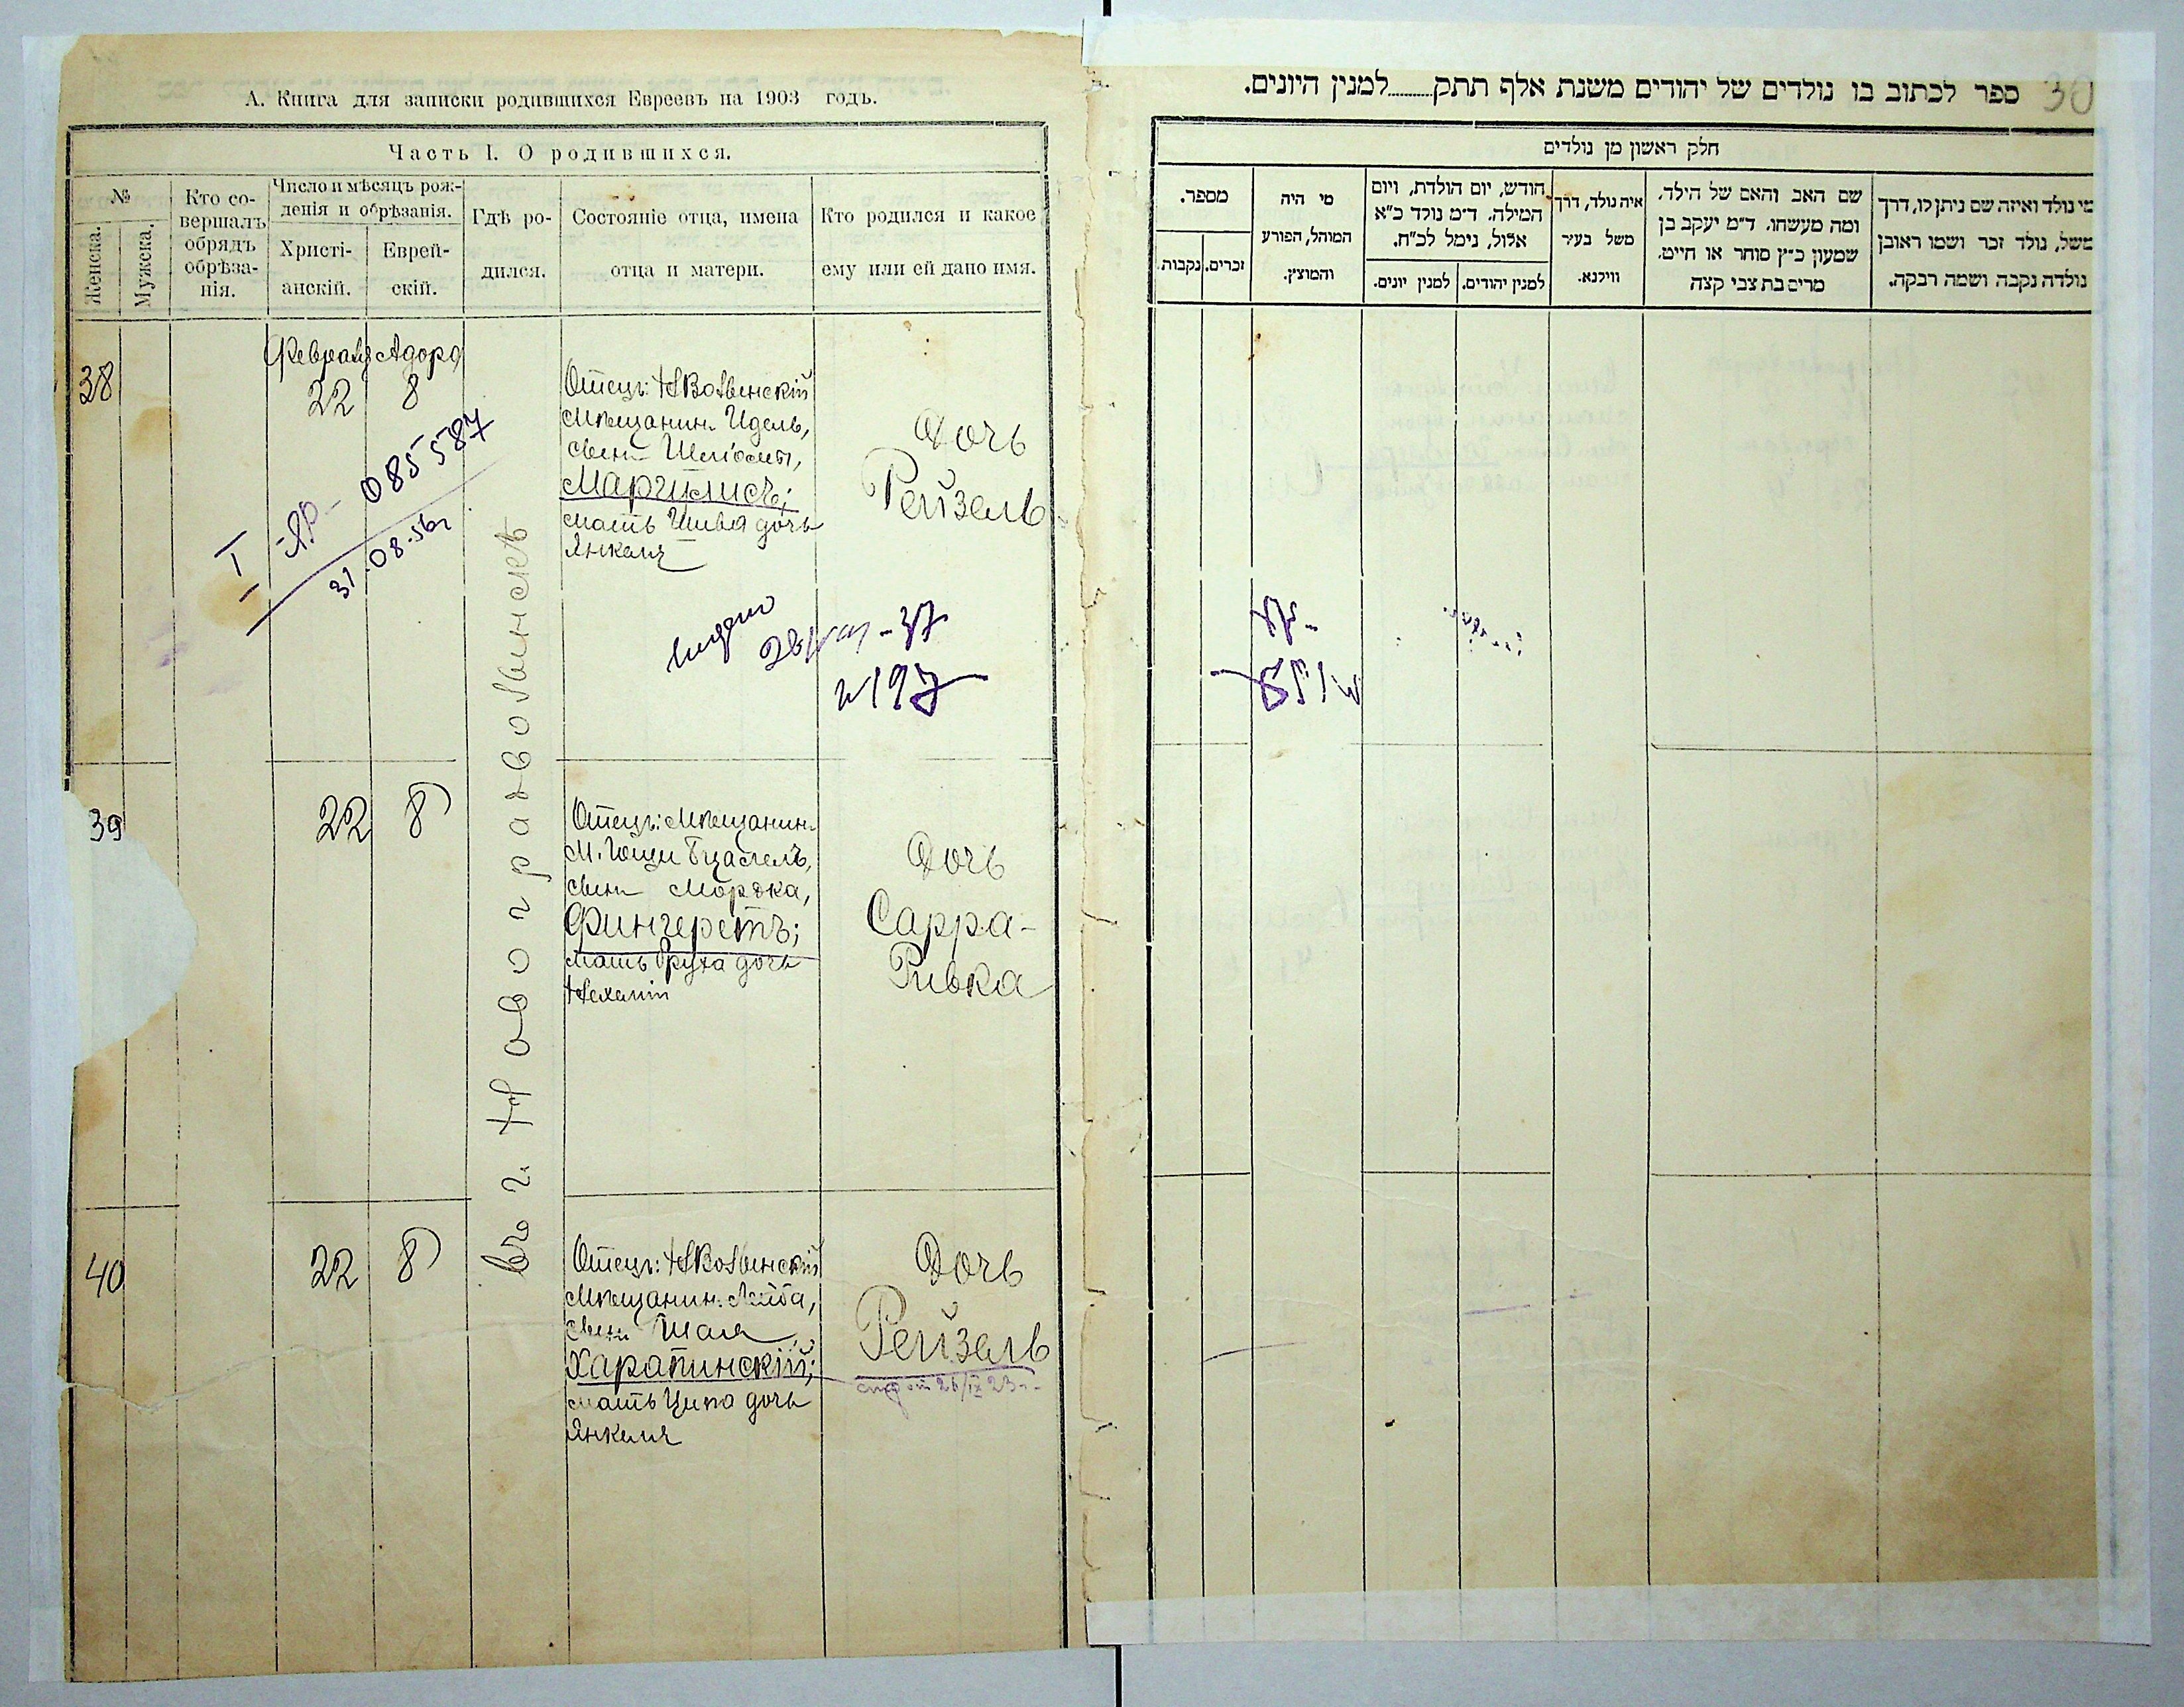 А. Книга для записки родившихся Евреевъ на 1903 годъ.
Часть I. О родившихся.
№
Женска.
Мужска.
Кто со-
вершалъ
обрядъ
обрѣза-
нія.
Число и мѣсяцъ рож-
денія и обрѣзанія.
Христі-
анскій.
Еврей-
скій.
Гдѣ ро-
дился.
Состояніе отца, имена
отца и матери.
Кто родился и какое
ему или ей дано имя.
38
Февраля Адора
22 8
Отецъ: НВолынскій
Мѣщанин. Идель,
сынъ
Маргулисъ;
мать дочь
Янкеля
Дочь
Рейзель
I -ЯР- 085587
31.08.56г
выдано
28 -37
№197
въ г. Новоградволынскѣ
39
22 8
Отецъ: Мѣщанин.
м. Гощи Бцалель,
сынъ Мордка,
Фингеретъ;
мать Фруха дочь
Нехеміи
Дочь
Сарра-
Ривка
40
22 8
Отецъ: НВолынскій
Мѣщанин. Лейба,
сынъ Шая
Харапинскій;
мать Ципа дочь
Янкеля
Дочь
Рейзель
26/IX 23г.
30
ספר לכתוב בו נולדים של יהודים משנת אלף תתק........למנין היונים.
חלק ראשון מן נולדים
מספר.
זכרים.
נקבות.
מי היה
המוהל, הפורע
והמוצץ.
חודש, יום הולדת, ויום
המילה. ד״מ נולד כ״א
אלול, נימל לכ״ח.
למנין יונים.
למנין יהודים.
איה נולד, דרך
משל בעיר
ווילנא.
שם האב והאם של הילד.
ומה מעשהו. ד״מ יעקב בן
שמעון כ״ץ סוחר או חייט.
מרים בת צבי קצה
מי נולד ואיזה שם ניתן לו, דרך
משל, נולד זכר ושמו ראובן
נולדה נקבה ושמה רבקה.